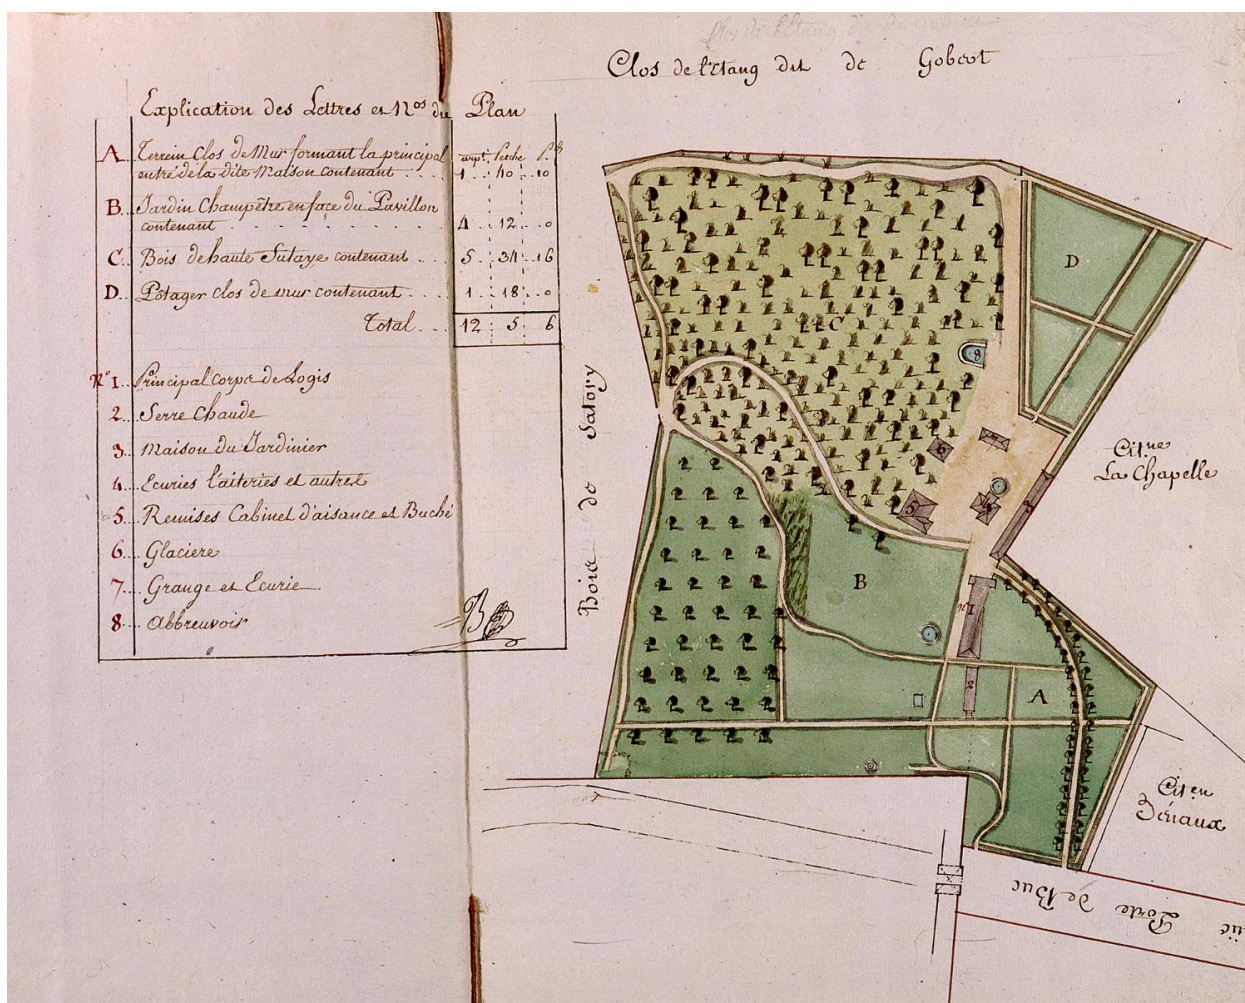 Clos de l'Etang dit de Gobert
Explication des Lettres et Nos du Plan
arpt. Perche Pds
A Terrein clos de Mur formant la principal
entré de la dite Maison contenant . . . 1 . 40 . 10
B Jardin Champêtre en façe du Pavillon
contenant . . . . . . . . 4 . 12 . 0
C. Bois de haute Futaye contenant . . . 5 . 34 . 16
D. Potager clos de mur contenant . . . . 1 . 18 . 0
Total . . . 12 5 6
No 1. Principal corps de Logis
2 Serre Chaude
3. Maison du Jardinier
4. Ecuries Laiteries et autres
5. Remises Cabinet d'aisance et Buché
6. Glaciere
7. Grange et Ecurie
8. Abbreuvois
Bois de Satory
D
C
8
6
7
5
4
3
B
No 1
2
A
Cit.ne
La Chapelle
Cit.en
Porte de Buc